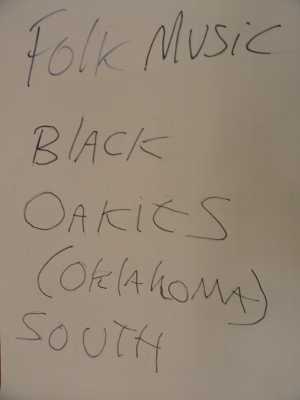 Folk Music
Black
Oakies
(Oklahoma)
South